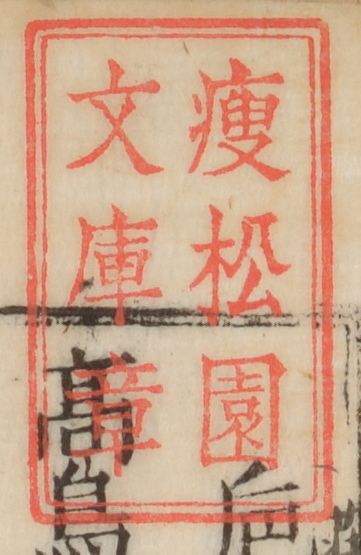 瘦松園
文庫章